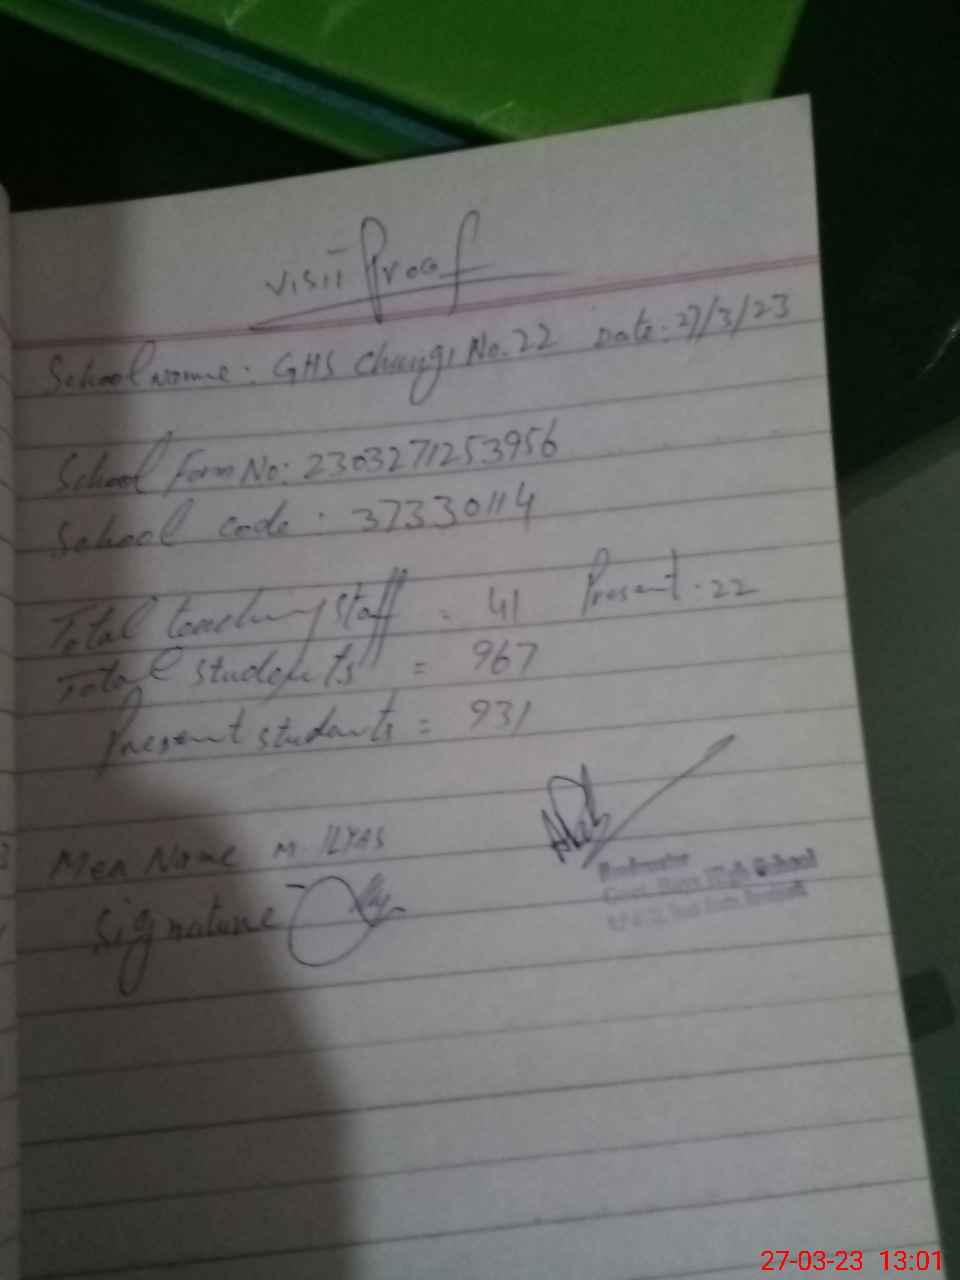 Visit Proof
School Name: GHS Chungi No. 22 Date: 27/3/23
School Form No: 2303271253956
School code: 37330114
Total teaching staff = 41 Present: 22
Total students = 967
Present students = 931
Mea Name M. ILYAS
Signature
Govt. Boys High School
27-03-23 13:01